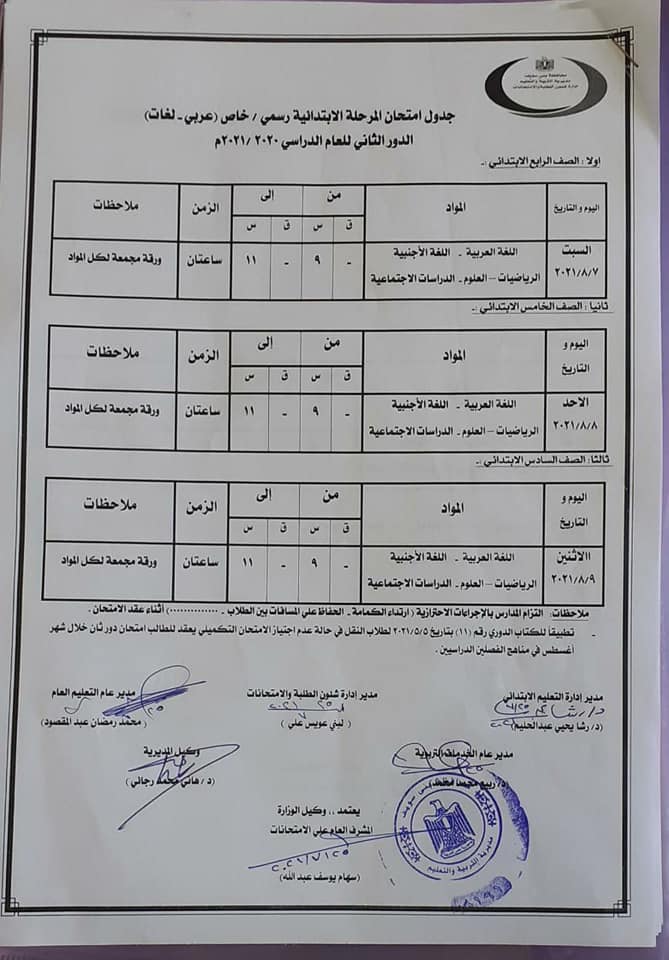 محافظة بنى سويف
مديرية التربية والتعليم
إدارة شئون الطلبة والامتحانات
جدول امتحان المرحلة الابتدائية رسمي / خاص (عربي - لغات)
الدور الثاني للعام الدراسي ٢٠٢٠ /٢٠٢١م
اولا : الصف الرابع الابتدائي :-
اليوم والتاريخ المواد من إلى الزمن ملاحظات
ق س ق س
السبت ٢٠٢١/٨/٧ اللغة العربية - اللغة الأجنبية - ٩ - ١١ ساعتان ورقة مجمعة لكل المواد
الرياضيات – العلوم - الدراسات الاجتماعية
ثانيا : الصف الخامس الابتدائي :-
اليوم و التاريخ المواد من إلى الزمن ملاحظات
ق س ق س
الاحد ٢٠٢١/٨/٨ اللغة العربية - اللغة الأجنبية - ٩ - ١١ ساعتان ورقة مجمعة لكل المواد
الرياضيات – العلوم - الدراسات الاجتماعية
ثالثا : الصف السادس الابتدائي :-
اليوم و التاريخ المواد من إلى الزمن ملاحظات
ق س ق س
الاثنين ٢٠٢١/٨/٩ اللغة العربية - اللغة الأجنبية - ٩ - ١١ ساعتان ورقة مجمعة لكل المواد
الرياضيات – العلوم - الدراسات الاجتماعية
ملاحظات: التزام المدارس بالإجراءات الاحترازية ( ارتداء الكمامة - الحفاظ على المسافات بين الطلاب - .............. ) أثناء عقد الامتحان .
- تطبيقاً للكتاب الدوري رقم (١١) بتاريخ ٢٠٢١/٥/٥ لطلاب النقل في حالة عدم اجتياز الامتحان التكميلي يعقد للطالب امتحان دور ثان خلال شهر
أغسطس في مناهج الفصلين الدراسيين .
مدير إدارة التعليم الابتدائي مدير إدارة شئون الطلبة والامتحانات مدير عام التعليم العام
(د/ رشا يحيي عبدالحليم) ( لبني عويس علي ) ( محمد رمضان عبد المقصود)
مدير عام الخدمات التربوية وكيل المديرية
(د/ ربيع محمد محمد) (د / هاني محمد رجالي)
يعتمد ،، وكيل الوزارة
المشرف العام علي الامتحانات
٢٠٢١/٧/٢٥
(سهام يوسف عبد الله)
مديرية التربية والتعليم